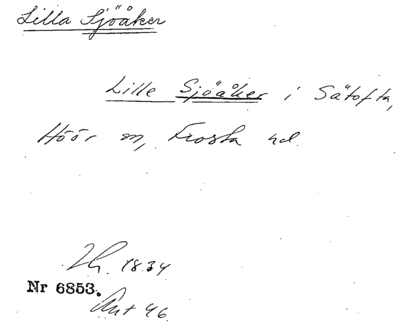 Lilla Sjöåker
Lille Sjöåker i Sätofta,
Höör sn, Frosta hd.
Lh. 1834
Nr 6853.
Akt 46